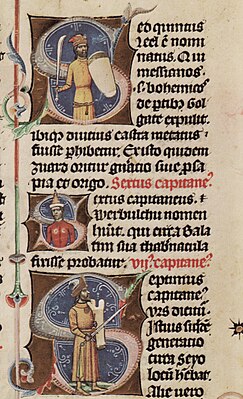 Sed quintus
Leel ē nomi
natus. Qui
messianos.
⁊ bohemos
de ptibȝ Gol
gate expulit.
ibiqȝ diutius castra metatus
fuisse phibetur. Ex isto quidem
zuard oritur gñatio siue psa
pia et origo. Sextus capitane⁹
Sextus capitaneus. ⁊
verbulchu nomen
hūit. qui circa Bala
tim sua thabnacula
fixisse probatur. vij⁹ capitane⁹
Septimus
capitane⁹
vrs dicitur.
Istius
generatio
circa seyo
locū hēbat.
Alie vero